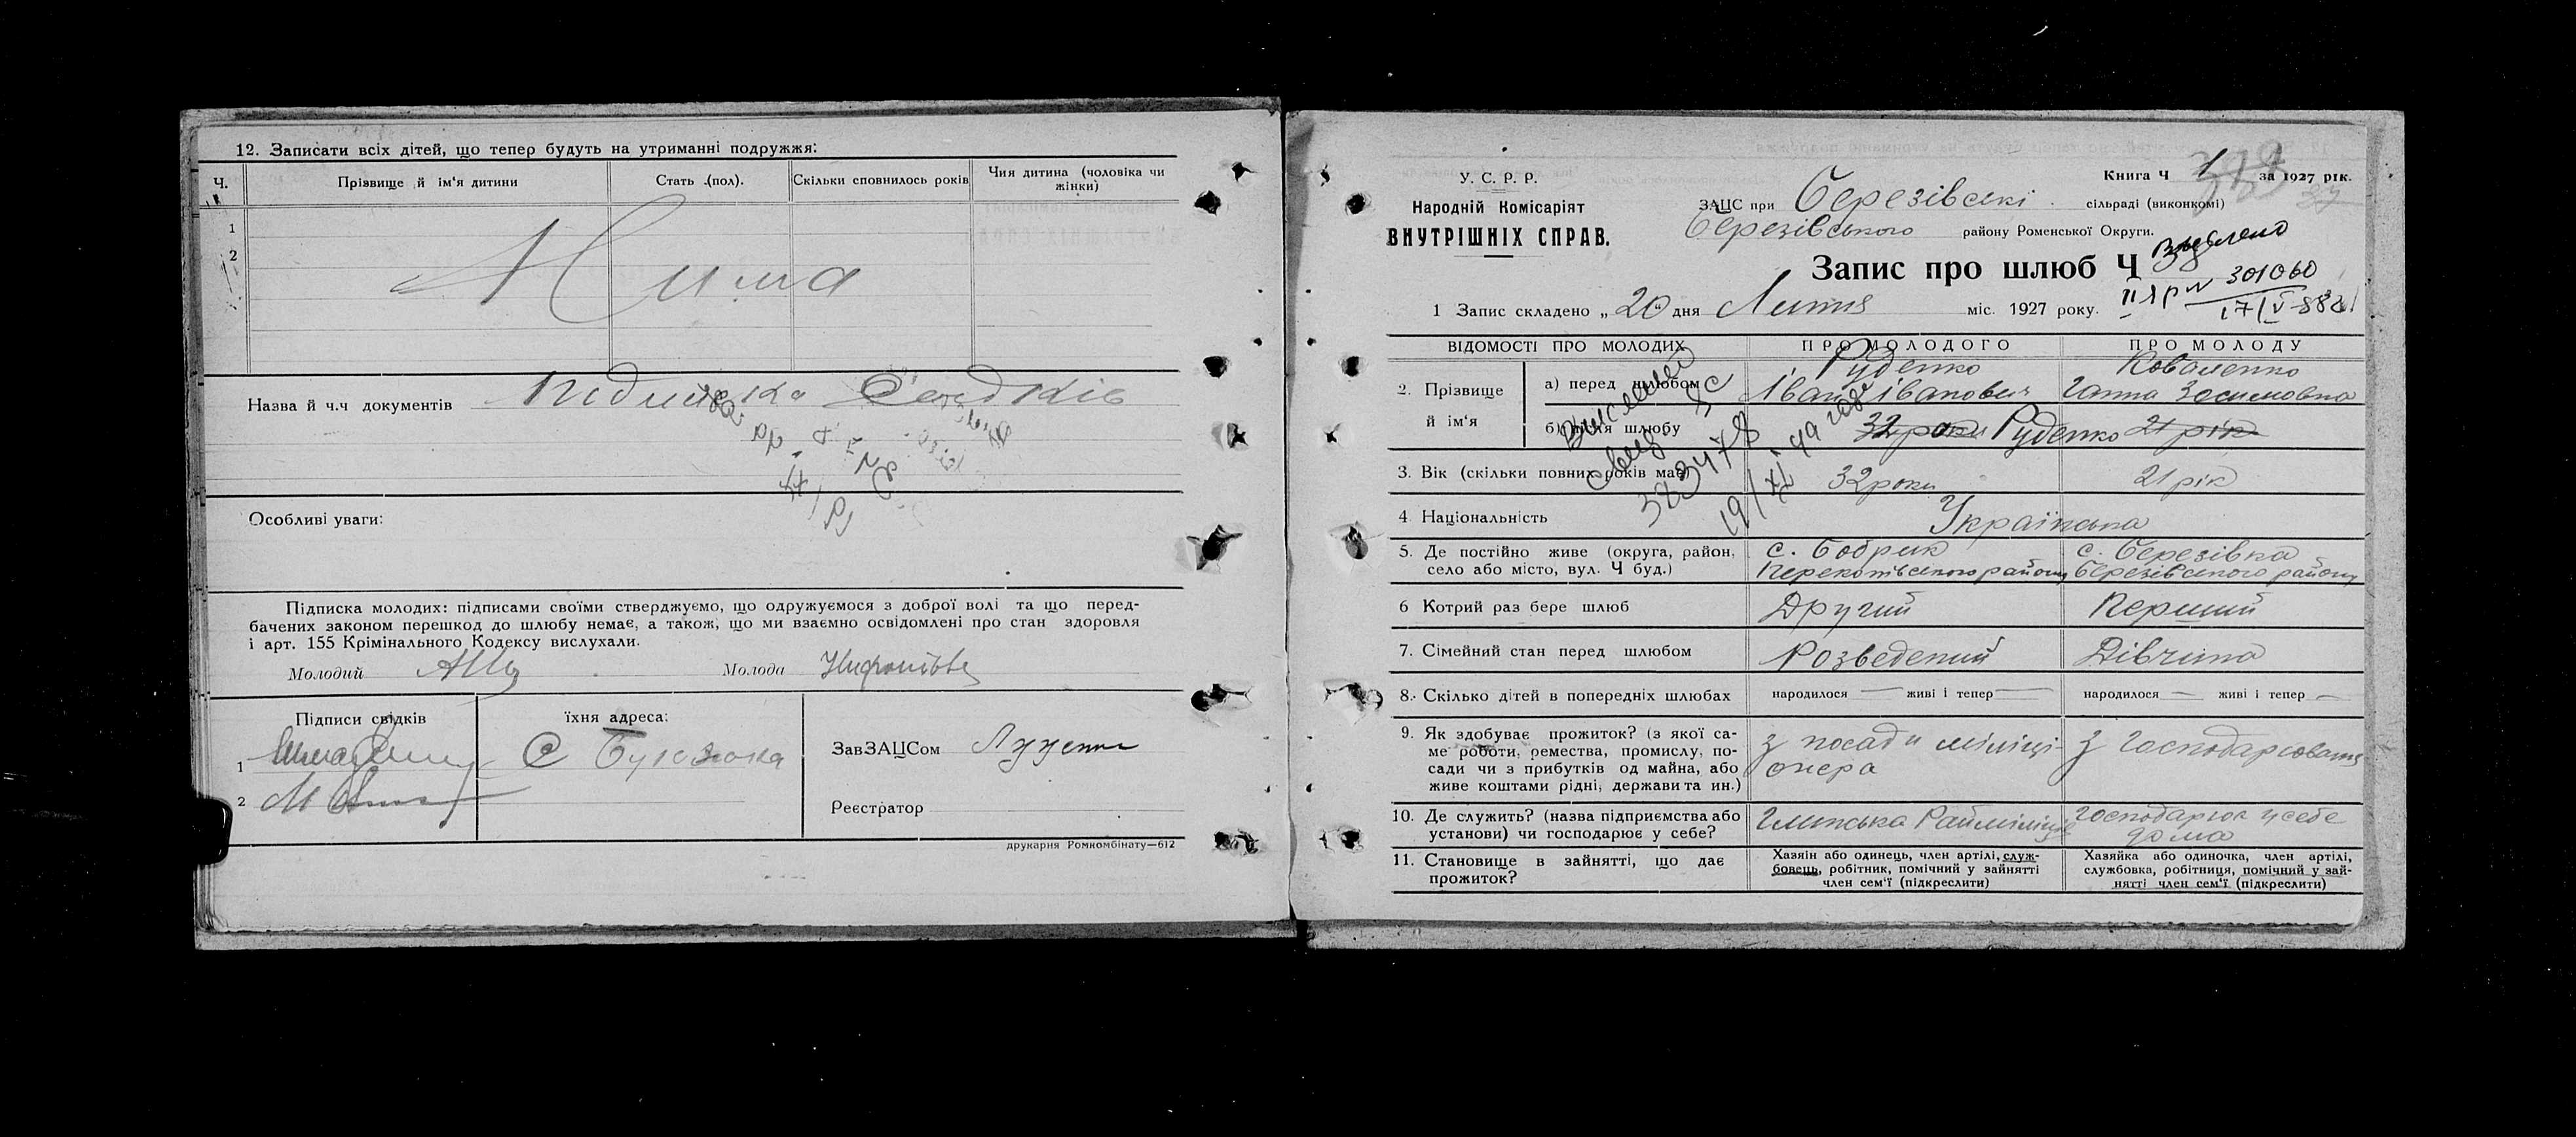 12. Записати всіх дітей, що тепер будуть на утриманні подружжя:
Ч. Прізвище й ім'я дитини Стать (пол). Скільки сповнилось років Чия дитина (чоловіка чи жінки)
1
2
Нима
Назва й ч.ч документів Підписка
Особливі уваги:
Підписка молодих: підписами своїми стверджуємо, що одружуємося з доброї волі та що перед-
бачених законом перешкод до шлюбу немає, а також, що ми взаємно освідомлені про стан здоровля
і арт. 155 Крімінального Кодексу вислухали.
Молодий Молода
Підписи свідків їхня адреса:
1
2
ЗавЗАЦСом
Реєстратор
друкарня Ромкомбінату—612
У. С. Р. Р.
Народній Комісаріят
ВНУТРІШНІХ СПРАВ.
Книга Ч 1 за 1927 рік.
ЗАЦС при Березівські сільраді (виконкомі)
Березівського району Роменської Округи.
Запис про шлюб Ч 38
301060
1 Запис складено „ 20 " дня Лютня міс. 1927 року.
ВІДОМОСТІ ПРО МОЛОДИХ ПРО МОЛОДОГО ПРО МОЛОДУ
2. Прізвище й ім'я
а) перед шлюбом Руденко Іван Іванович Коваленко Ганна Зосимовна
б) після шлюбу 32 роки Руденко 21 рік
3. Вік (скільки повних років має) 32 роки 21 рік
323478
19/XI 49 года
4. Національність Українська
5. Де постійно живе (округа, район, с. Бобрик с. Березівка
село або місто, вул. Ч буд.) Перекопівського району Березівського району
6 Котрий раз бере шлюб Другий Перший
7. Сімейний стан перед шлюбом Розведений Дівчина
8. Скілько дітей в попередніх шлюбах народилося — живі і тепер — народилося — живі і тепер —
9. Як здобуває прожиток? (з якої са-
ме роботи, ремества, промислу, по-
сади чи з прибутків од майна, або
живе коштами рідні, держави та ин.)
з посади міліці-
онера
з господарювання
10. Де служить? (назва підприємства або
установи) чи господарює у себе?
Глинська Райміліція
господарює у себе
дома
11. Становище в зайнятті, що дає
прожиток?
Хазяїн або одинець, член артілі, служ-
бовець, робітник, помічний у зайнятті
член сем'ї (підкреслити)
Хазяйка або одиночка, член артілі,
службовка, робітниця, помічний у зай-
нятті член сем'ї (підкреслити)